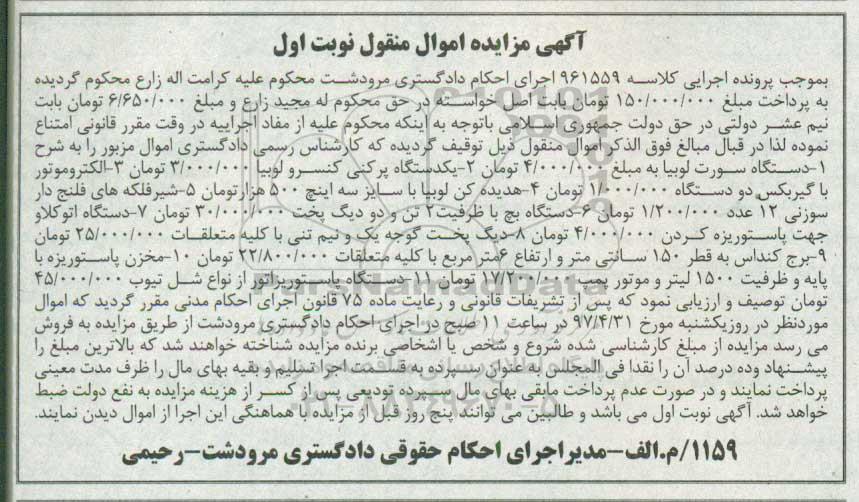 آگهی مزایده اموال منقول نوبت اول
بموجب پرونده اجرایی کلاسه ۹۶۱۵۵۹ اجرای احکام دادگستری مرودشت محکوم علیه کرامت اله زارع محکوم گردیده
به پرداخت مبلغ ۱۵۰/۰۰۰/۰۰۰ تومان بابت اصل خواسته در حق محکوم له مجید زارع و مبلغ ۶/۶۵۰/۰۰۰ تومان بابت
نیم عشر دولتی در حق دولت جمهوری اسلامی باتوجه به اینکه محکوم علیه از مفاد اجراییه در وقت مقرر قانونی امتناع
نموده لذا در قبال مبالغ فوق الذکر اموال منقول ذیل توقیف گردیده که کارشناس رسمی دادگستری اموال مزبور را به شرح
۱-دستگاه سورت لوبیا به مبلغ ۴/۰۰۰/۰۰۰ تومان ۲-یکدستگاه پرکنی کنسرو لوبیا ۳/۰۰۰/۰۰۰ تومان ۳-الکتروموتور
با گیربکس دو دستگاه ۱/۰۰۰/۰۰۰ تومان ۴-هدیده کن لوبیا با سایز سه اینچ ۵۰۰ هزارتومان ۵-شیرفلکه های فلنج دار
سوزنی ۱۲ عدد ۱/۲۰۰/۰۰۰ تومان ۶-دستگاه بچ با ظرفیت۲ تن و دو دیگ پخت ۳۰/۰۰۰/۰۰۰ تومان ۷-دستگاه اتوکلاو
جهت پاستوریزه کردن ۴/۰۰۰/۰۰۰ تومان ۸-دیگ پخت گوجه یک و نیم تنی با کلیه متعلقات ۲۵/۰۰۰/۰۰۰ تومان
۹-برج کنداس به قطر ۱۵۰ سانتی متر و ارتفاع ۶متر مربع با کلیه متعلقات ۲۲/۸۰۰/۰۰۰ تومان ۱۰-مخزن پاستوریزه با
پایه و ظرفیت ۱۵۰۰ لیتر و موتور پمپ ۱۷/۲۰۰/۰۰۰ تومان ۱۱-دستگاه پاستوریزاتور از نواع شل تیوب ۴۵/۰۰۰/۰۰۰
تومان توصیف و ارزیابی نمود که پس از تشریفات قانونی و رعایت ماده ۷۵ قانون اجرای احکام مدنی مقرر گردید که اموال
موردنظر در روزیکشنبه مورخ ۹۷/۴/۳۱ در ساعت ۱۱ صبح در اجرای احکام دادگستری مرودشت از طریق مزایده به فروش
می رسد مزایده از مبلغ کارشناسی شده شروع و شخص یا اشخاصی برنده مزایده شناخته خواهند شد که بالاترین مبلغ را
پیشنهاد وده درصد آن را نقدا فی المجلس به عنوان سپرده به قسمت اجرا تسلیم و بقیه بهای مال را ظرف مدت معینی
پرداخت نمایند و در صورت عدم پرداخت مابقی بهای مال سپرده تودیعی پس از کسر از هزینه مزایده به نفع دولت ضبط
خواهد شد. آگهی نوبت اول می باشد و طالبین می توانند پنج روز قبل از مزایده با هماهنگی این اجرا از اموال دیدن نمایند.
۱۱۵۹/م.الف-مدیراجرای احکام حقوقی دادگستری مرودشت-رحیمی